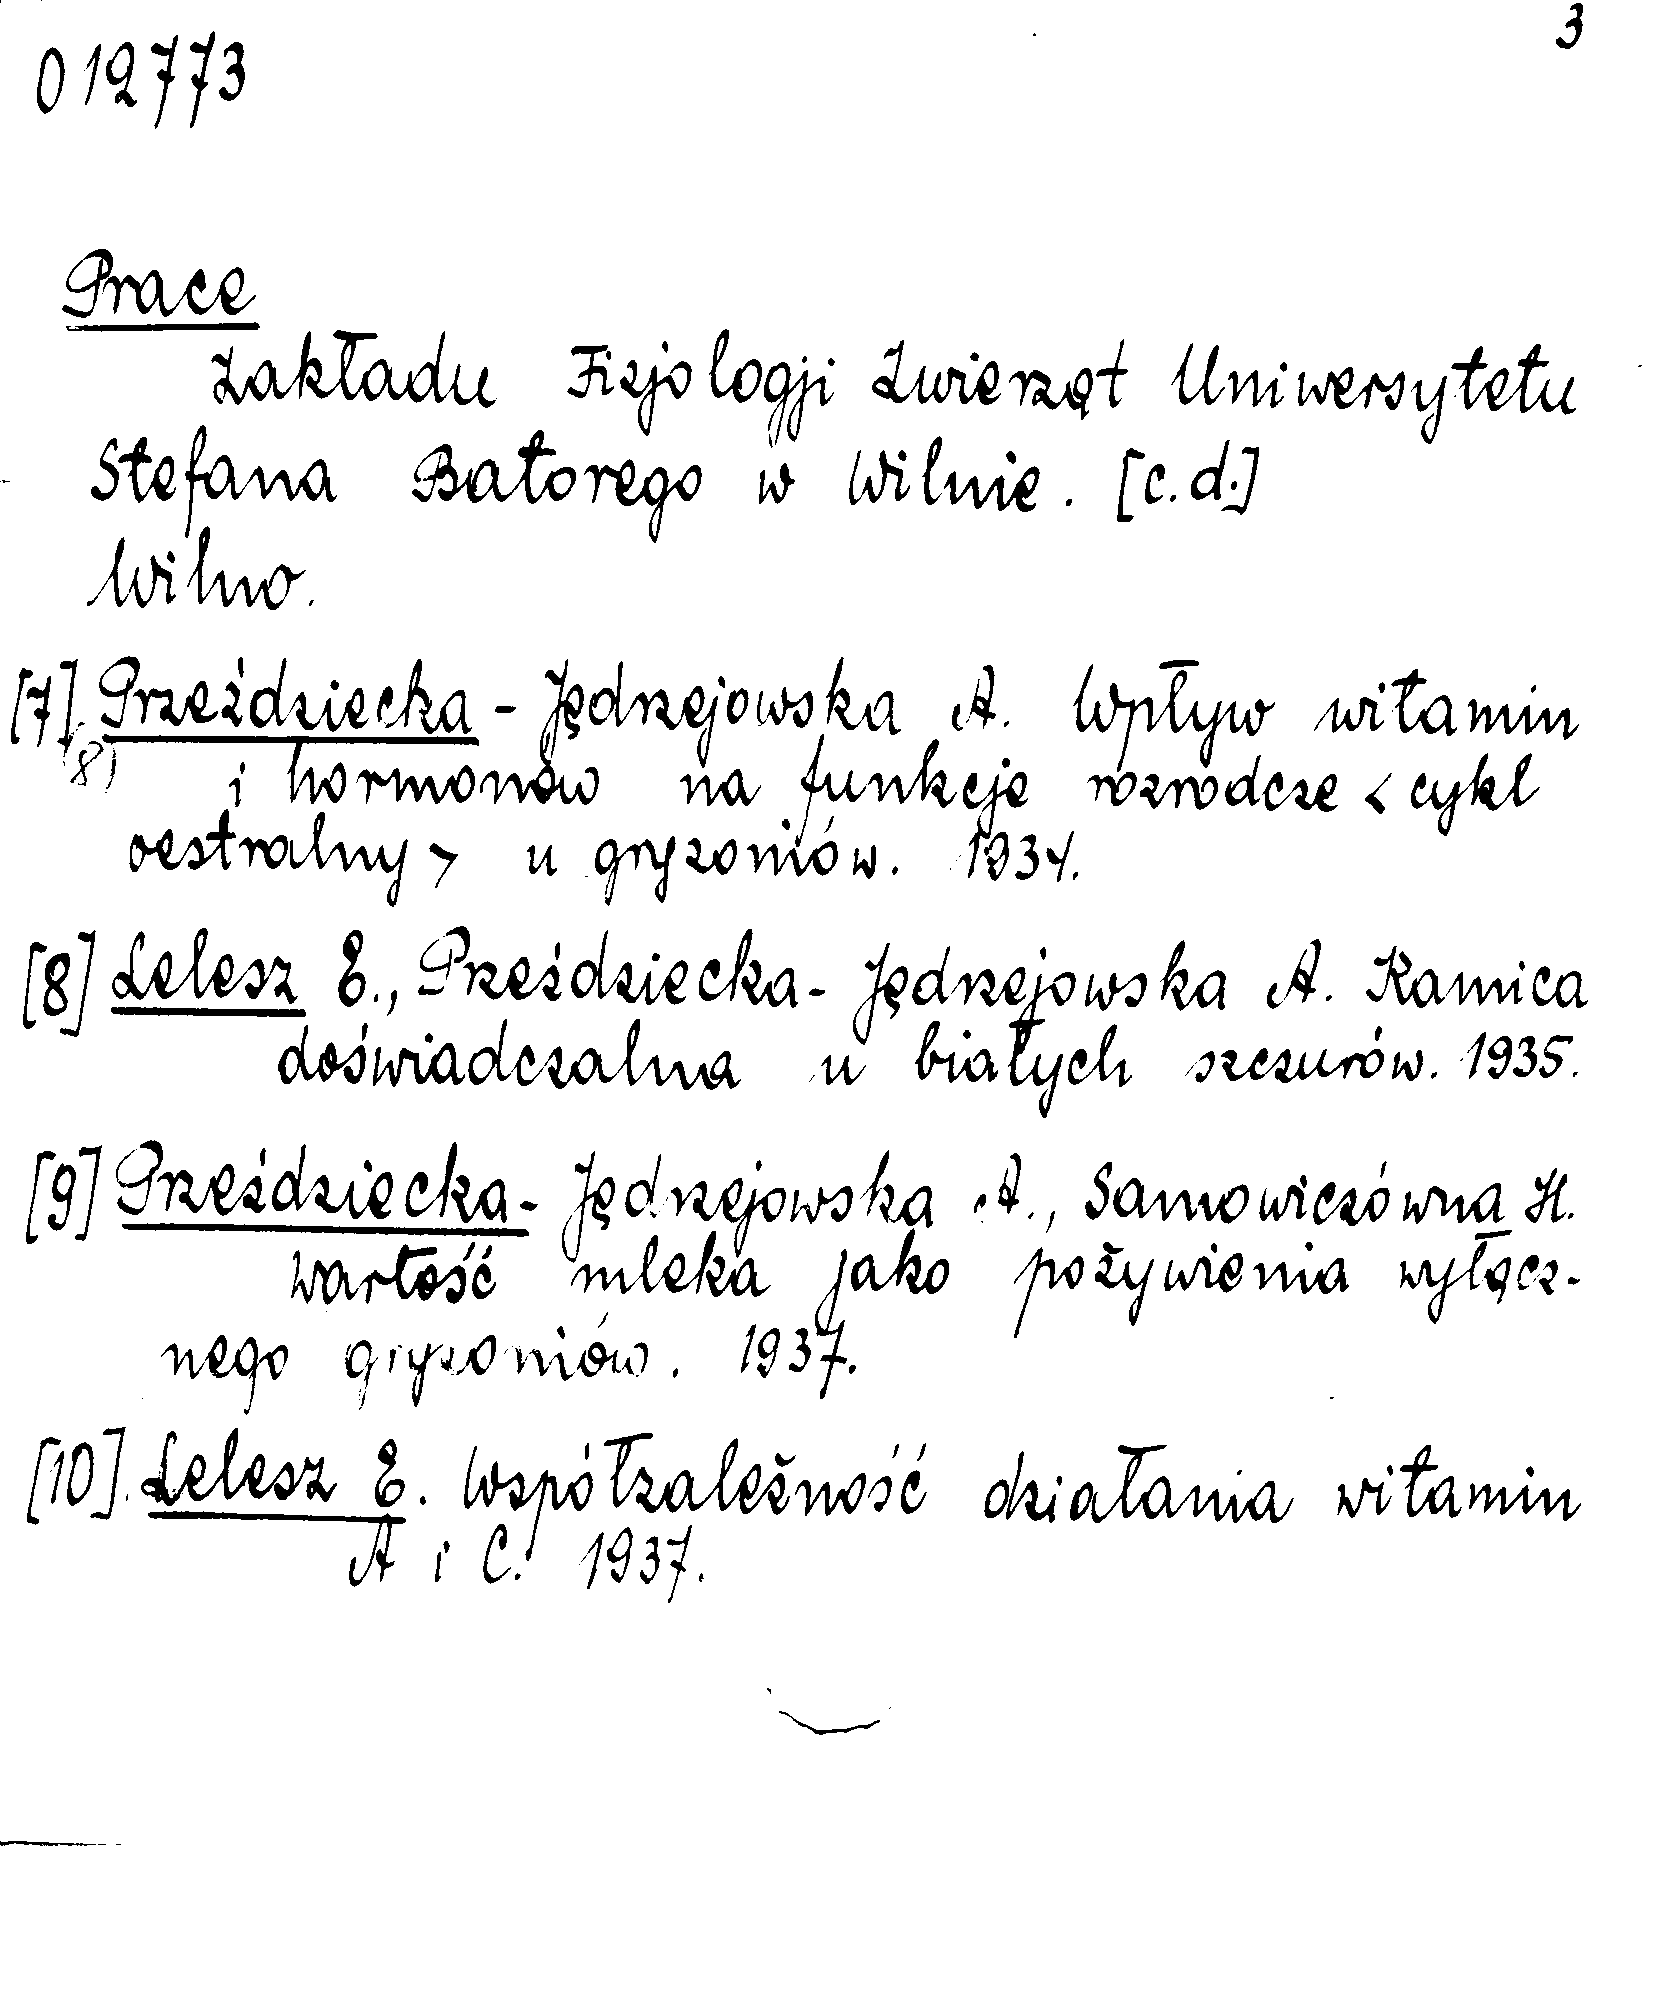 3
012773
Prace
Zakładu Fizjologji Zwierząt Uniwersytetu
Stefana Batorego w Wilnie. [c.d.]
Wilno.
[7] Przeździecka - Jędrzejowska A. Wpływ witamin
(8) i hormonów na funkcje rozrodcze < cykl
oestralny > u gryzoniów. 1934.
[8] Lelesz E., Przeździecka - Jędrzejowska A. Kamica
doświadczalna u białych szczurów. 1935.
[9] Przeździecka - Jędrzejowska A., Samowiczówna H.
Wartość mleka jako pożywienia wyłącz-
nego gryzoniów. 1937.
[10]. Lelesz E. Współzależność działania witamin
A i C. 1937.